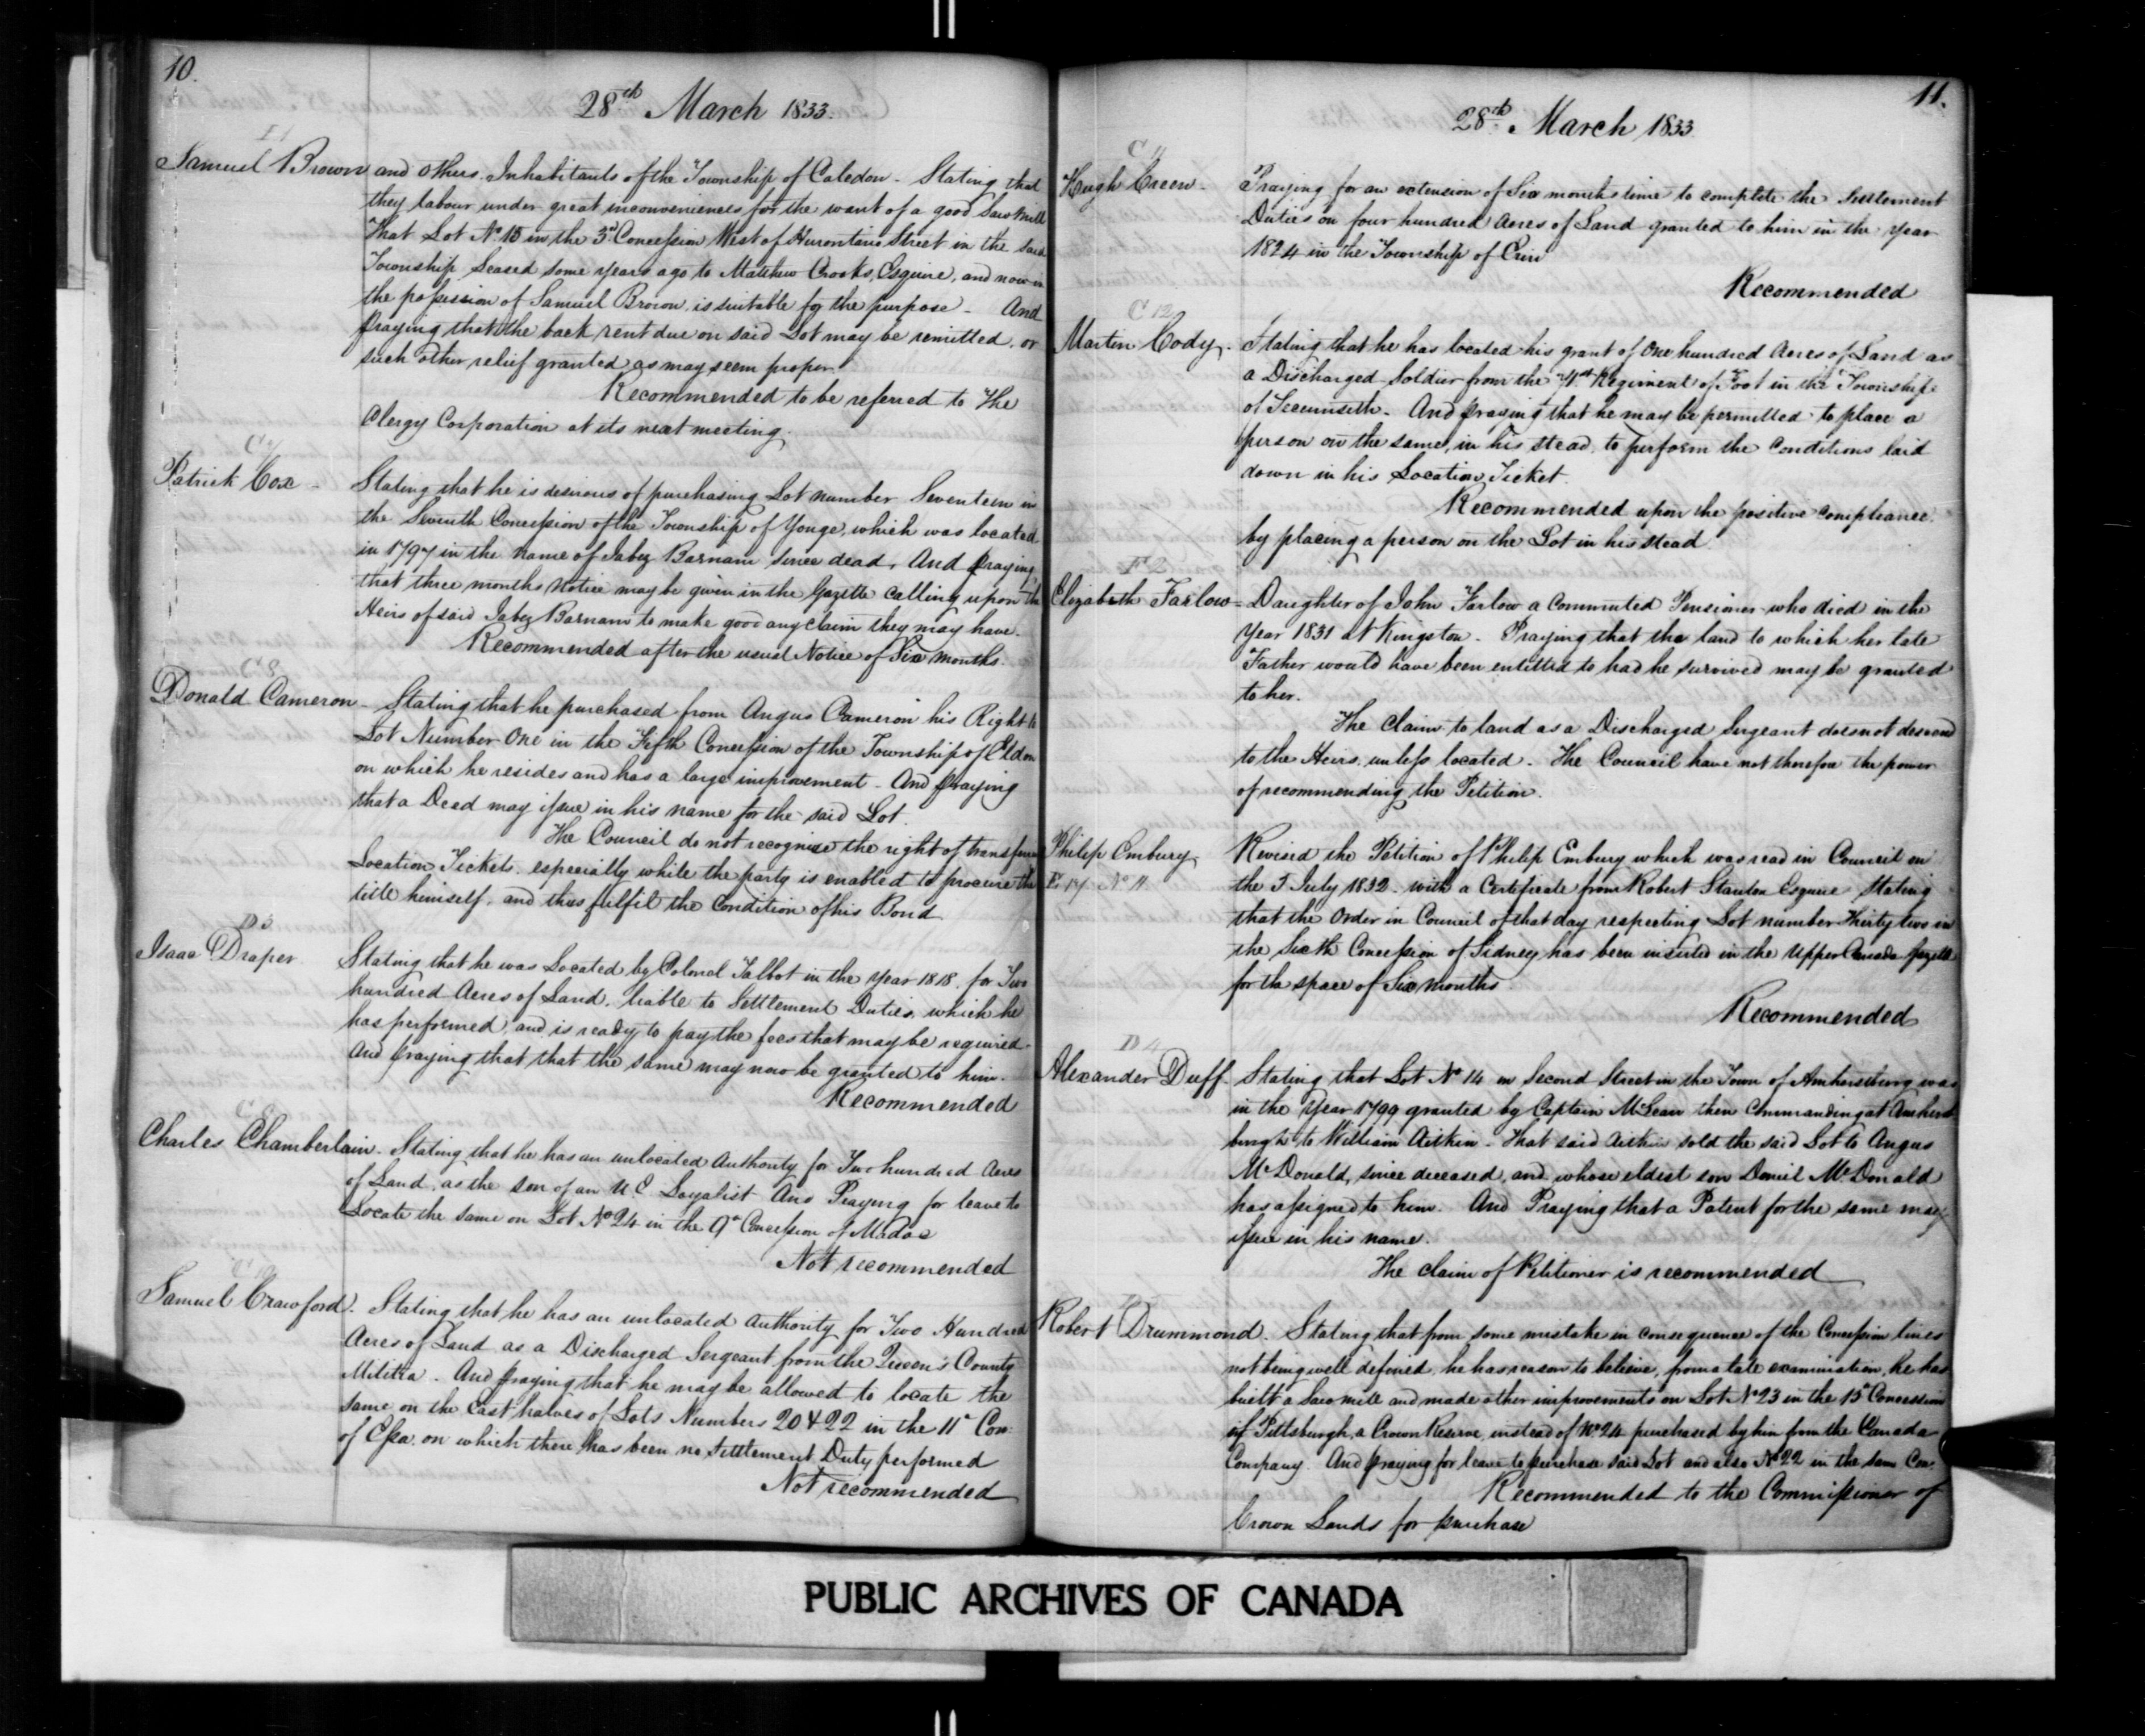 10.
28th March 1833.
Samuel Brown and others. Inhabitants of the Township of Caledon - Stating that
they labour under great inconveniences for the want of a good Saw Mill
That Lot No 15 in the 3d Concession West of Hurontario Street in the said
Township leased some years ago to Matthew Crooks, Esquire, and now in
the possession of Samuel Brown, is suitable for the purpose - And
praying that the back rent due on said Lot may be remitted, or
such other relief granted as may seem proper.
Recommended to be referred to the
Clergy Corporation at its next meeting.
C 7
Patrick Cox - Stating that he is desirous of purchasing Lot number Seventeen in
the Seventh Concession of the Township of Yonge, which was located
in 1797 in the name of Jabez Barnam since dead, And praying
that three months Notice may be given in the Gazette calling upon the
Heirs of said Jabez Barnam to make good any claim they may have.
Recommended after the usual Notice of Six Months.
C 8
Donald Cameron - Stating that he purchased from Angus Cameron his Right to
Lot Number One in the Fifth Concession of the Township of Eldon
on which he resides and has a large improvement - And praying
that a Deed may issue in his name for the said Lot.
The Council do not recognize the right of
Location Tickets, especially while the party is enabled to procure the
title himself, and thus fulfil the Condition of his Bond
D 3
Isaac Draper. Stating that he was Located by Colonel Talbot in the Year 1818, for Two
hundred Acres of Land, liable to Settlement Duties, which he
has performed, and is ready to pay the fees that may be required.
And praying that that the same may now be granted to him.
Recommended
C 9
Charles Chamberlain. Stating that he has an unlocated Authority for Two hundred Acres
of Land, as the son of an U.E. Loyalist And Praying for leave to
Locate the same on Lot No 24 in the 9th Concession of Madoc
Not recommended
C 10
Samuel Crawford. Stating that he has an unlocated Authority for Two Hundred
Acres of Land as a Discharged Sergeant from the Queen's County
Militia. And praying that he may be allowed to locate the
same on the East halves of Lots Numbers 20 & 22 in the 11th Con:
of Essa, on which there has been no Settlement Duty performed
Not recommended
11.
28th March 1833
C 11
Hugh Creen - Praying for an extension of Six months time to complete the Settlement
Duties on four hundred Acres of Land granted to him in the year
1824 in the Township of Erin
Recommended
C 12
Martin Cody. Stating that he has located his grant of One hundred Acres of Land as
a Discharged Soldier from the 71st Regiment of Foot in the Township
of Tecumseth. And praying that he may be permitted to place a
person on the same, in his stead, to perform the Conditions laid
down in his Location Ticket.
Recommended upon the positive compliance
by placing a person on the Lot in his stead.
F 2
Elizabeth Farlow = Daughter of John Farlow a Commuted Pensioner who died in the
Year 1831 at Kingston. Praying that the land to which her late
Father would have been entitled to had he survived may be granted
to her.
The Claim to land as a Discharged Sergeant does not descend
to the Heirs, unless located. The Council have not therefore the power
of recommending the Petition.
Philip Embury Revised the Petition of Philip Embury which was read in Council on
E 17 No 11 the 5 July 1832. with a Certificate from Robert Stanton Esquire Stating
that the Order in Council of that day respecting Lot number Thirty two in
the Sixth Concession of Sidney has been inserted in the Upper Canada Gazette
for the space of Six Months
Recommended
D 4
Alexander Duff. Stating that Lot No 14 on Second Street in the Town of Amherstburg was
in the Year 1799 granted by Captain McLean then Commanding at Amherst
burgh to William Aitkin. That said Aitkin sold the said Lot to Angus
McDonald, since deceased, and whose eldest son Daniel McDonald
has assigned to him. And Praying that a Patent for the same may
issue in his name.
The claim of Petitioner is recommended
Robert Drummond. Stating that from some mistake in consequence of the Concession lines
not being well defined, he has reason to believe, from a late examination, he has
built a Saw mill and made other improvements on Lot No 23 in the 15th Concession
of Pittsburgh, a Crown Reserve, instead of No 24 purchased by him from the Canada
Company. And praying for leave to purchase said Lot and also No 22 in the same Con:
Recommended to the Commissioner of
Crown Lands for purchase
PUBLIC ARCHIVES OF CANADA